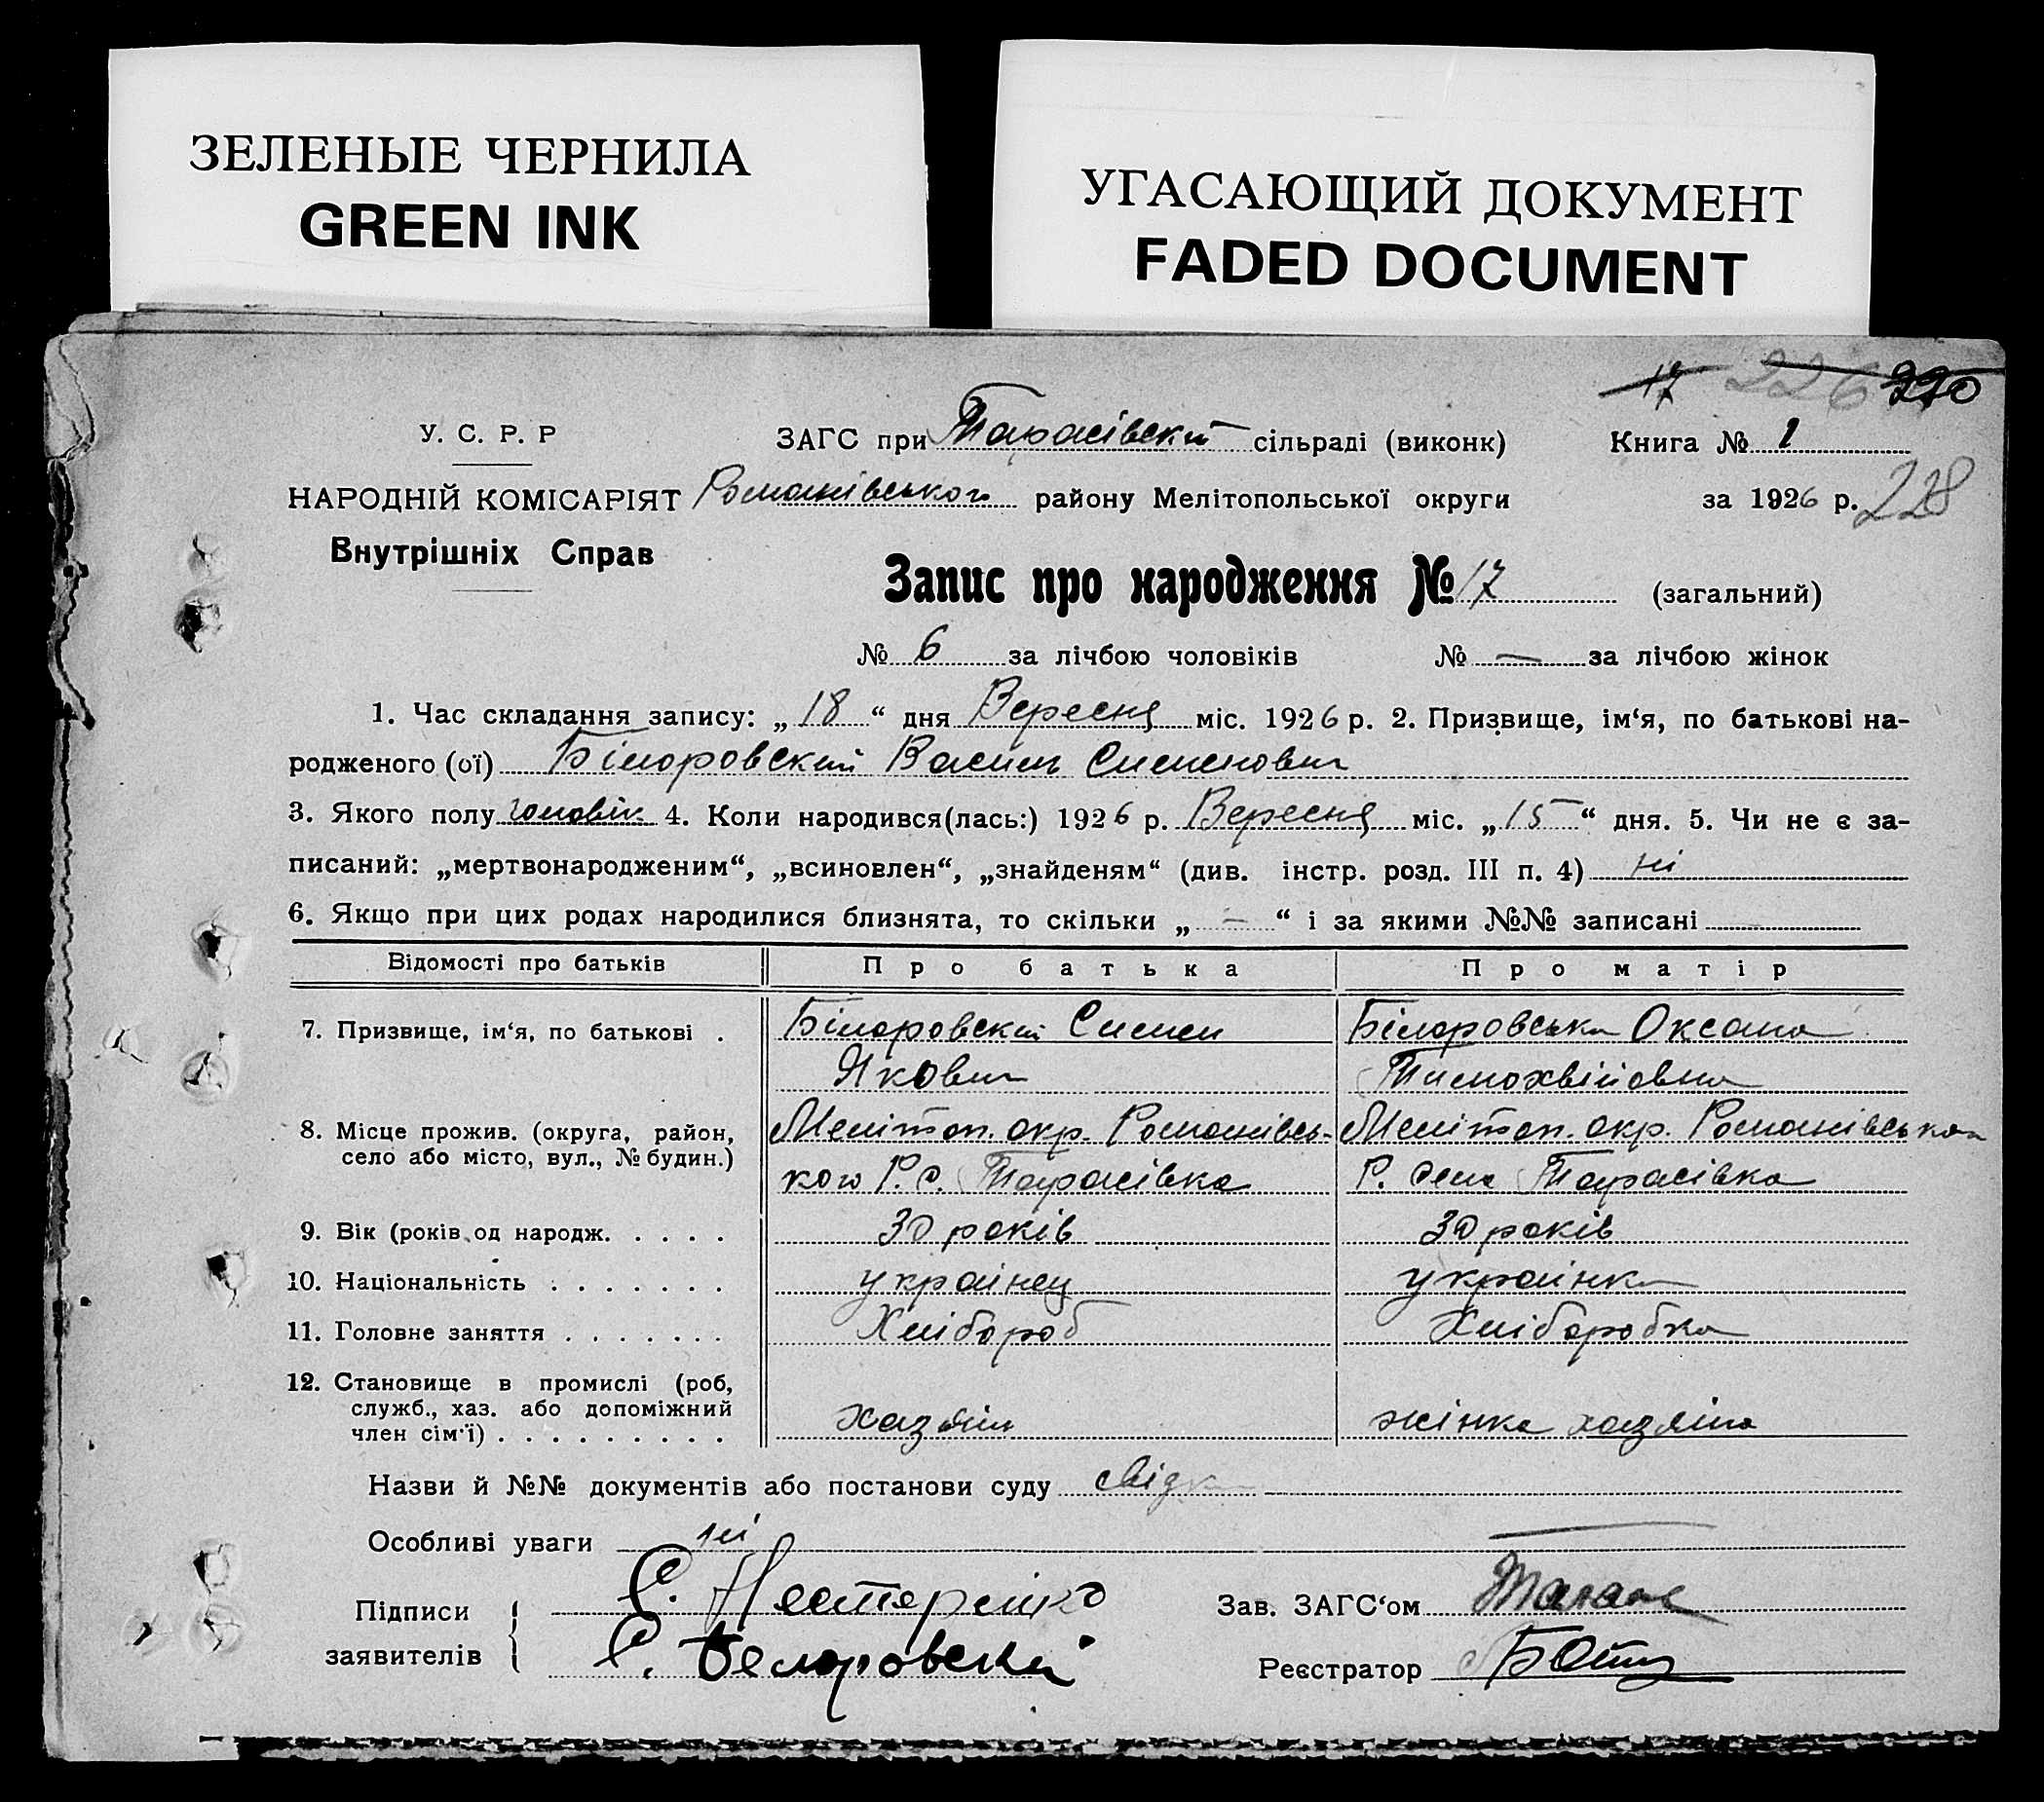 ЗЕЛЕНЫЕ ЧЕРНИЛА
GREEN INK
УГАСАЮЩИЙ ДОКУМЕНТ
FADED DOCUMENT
17 226 220
У. С. Р. Р ЗАГС при Тарасівскій сільраді (виконк) Книга № 1
НАРОДНІЙ КОМІСАРІЯТ Романівського району Мелітопольської округи за 1926 р. 228
Внутрішніх Справ
Запис про народження № 17 (загальний)
№ 6 за лічбою чоловіків № — за лічбою жінок
1. Час складання запису: „18“ дня Вересня міс. 1926 р. 2. Призвище, ім‘я, по батькові на-
родженого (ої) Білоровскій Василь Сименович
3. Якого полу чоловік 4. Коли народився(лась:) 1926 р. Вересня міс. „15“ дня. 5. Чи не є за-
писаний: „мертвонародженим“, „всиновлен“, „знайденям“ (див. інстр. розд. III п. 4) ні
6. Якщо при цих родах народилися близнята, то скільки „—“ і за якими №№ записані
Відомості про батьків Про батька Про матір
7. Призвище, ім‘я, по батькові . Білоровскій Симен Білоровська Оксана
Якович Тимохвіївна
8. Місце прожив. (округа, район, Мелітоп. окр. Романівсь- Меліт оп. окр. Романівсько
село або місто, вул., № будин.) кого Р. с. Тарасівка Р. села Тарасівка
9. Вік (років од народж. . . . . 30 років 30 років
10. Національність . . . . . . . українец українка
11. Головне заняття . . . . . . . Хлібороб Хліборобка
12. Становище в промислі (роб,
служб., хаз. або допоміжний
член сім‘ї) . . . . . . . . . хазяїн жінка хазяїна
Назви й №№ документів або постанови суду свідк
Особливі уваги ні —
Підписи С. Нестеренко Зав. ЗАГС‘ом
заявителів С. Белоровскій Реєстратор